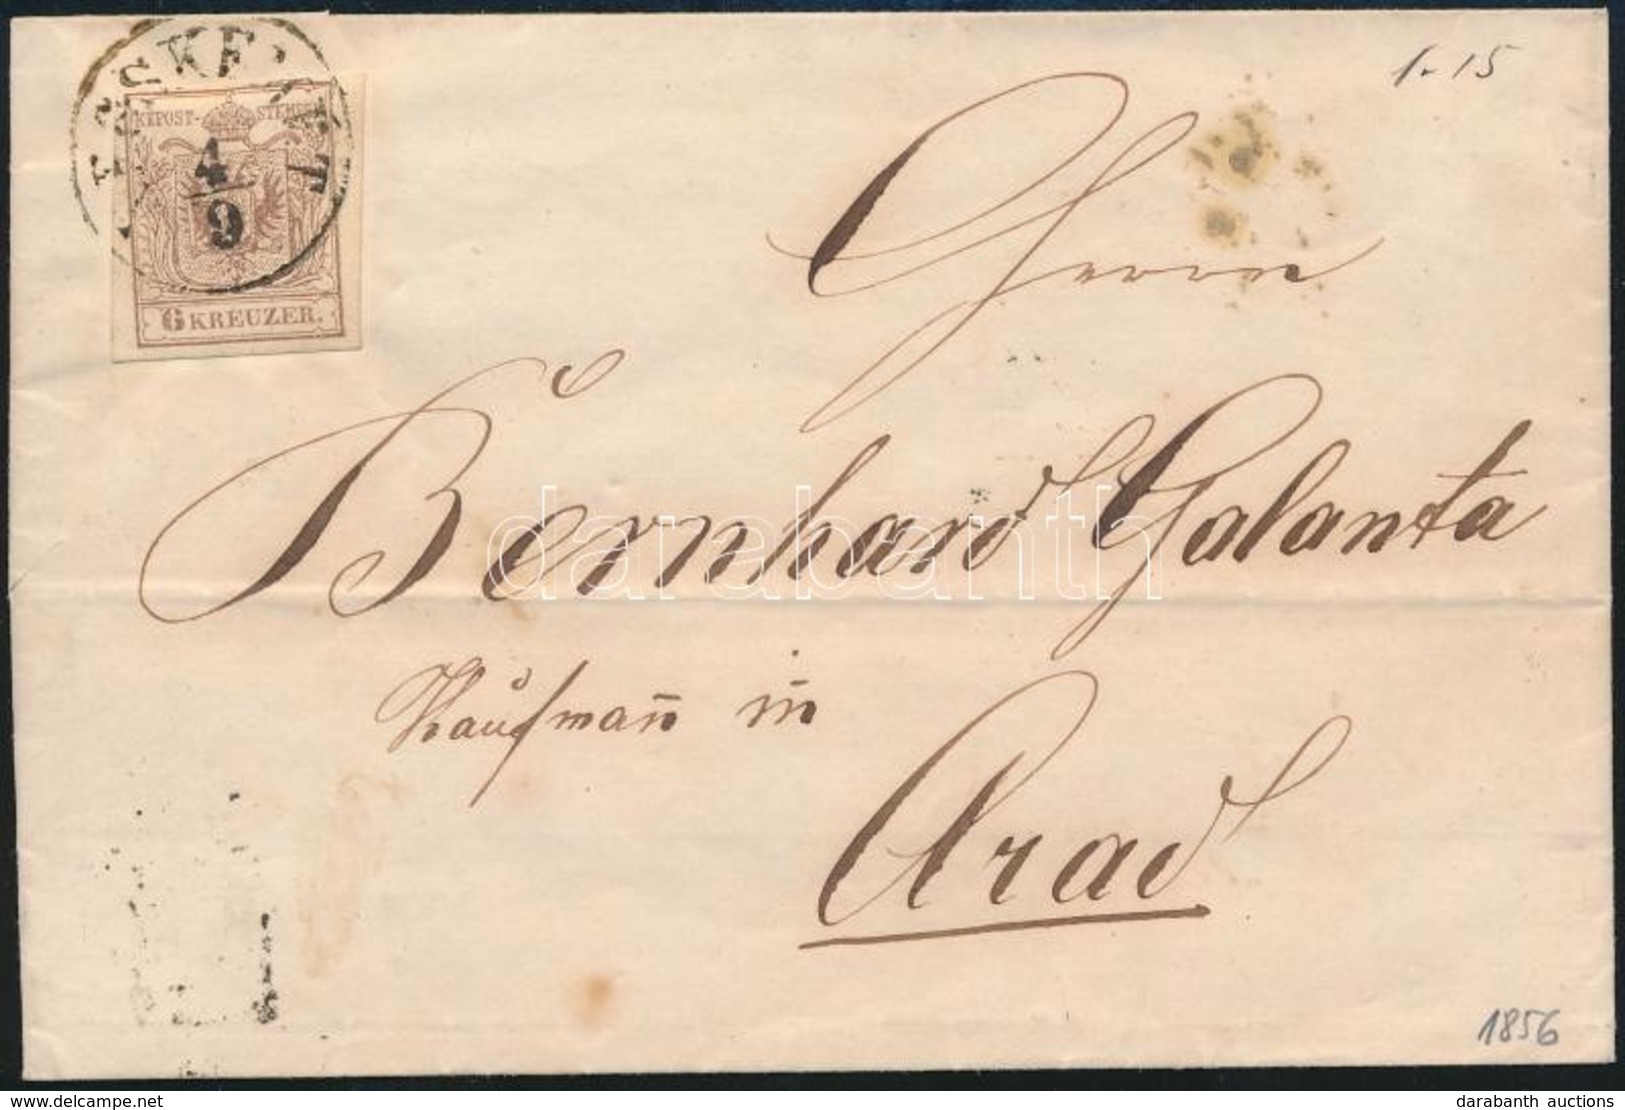 KKPOST-STEMPEL
4
9
6 KREUZER.
1.15
Herrn
Bernhard Galanta
Kaufman̄ in
Arad
1856
darabanth
darabanth.com
darabanth auctions